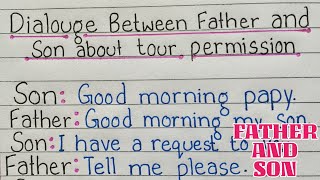 Dialouge Between Father and
Son about tour permission
Son: Good morning papy.
Father: Good morning my son
Son: I have a request to
Father: Tell me please.
FATHER
AND
SON